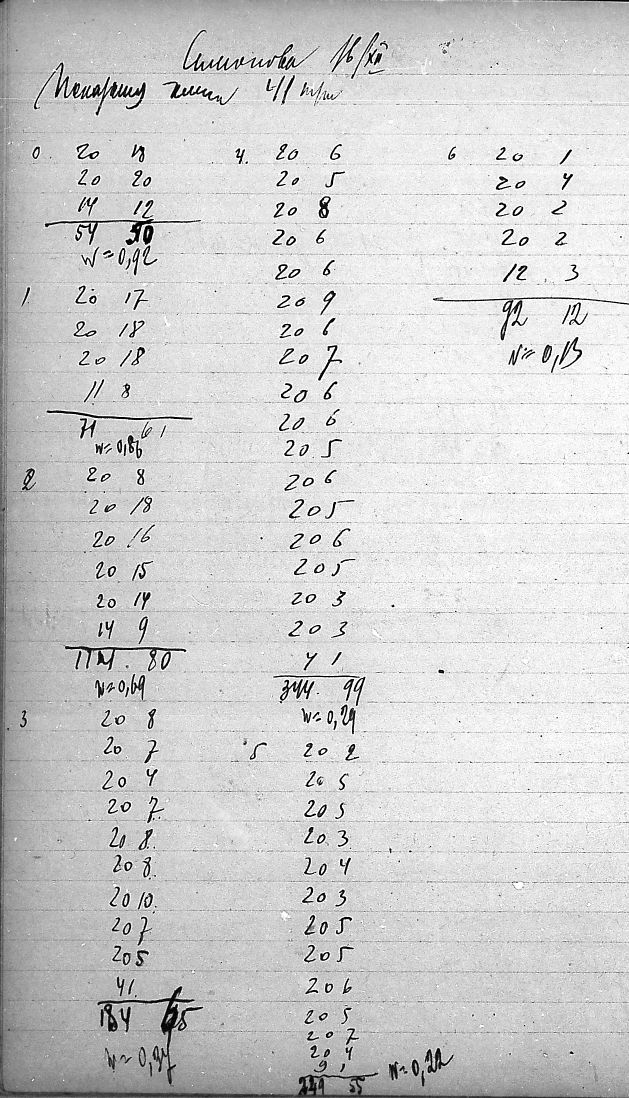 Симонова 16/XII
41
0. 20 18
20 20
14 12
54 50
w=0,92
1. 20 17
20 18
20 18
11 8
71 61
w=0,86
2 20 8
20 18
20 16
20 15
20 14
14 9
114 80
w=0,69
3 20 8
20 7
20 4
20 7
20 8
20 8
20 10
20 7
20 5
4 1
184 65
w=0,34
4. 20 6
20 5
20 8
20 6
20 6
20 9
20 6
20 7
20 6
20 6
20 5
20 6
20 5
20 6
20 5
20 3
20 3
4 1
344 99
w=0,29
5 20 2
20 5
20 5
20 3
20 4
20 3
20 5
20 5
20 6
20 5
20 7
20 4
9 1
249 55
w=0,22
6 20 1
20 4
20 2
20 2
12 3
92 12
w=0,13